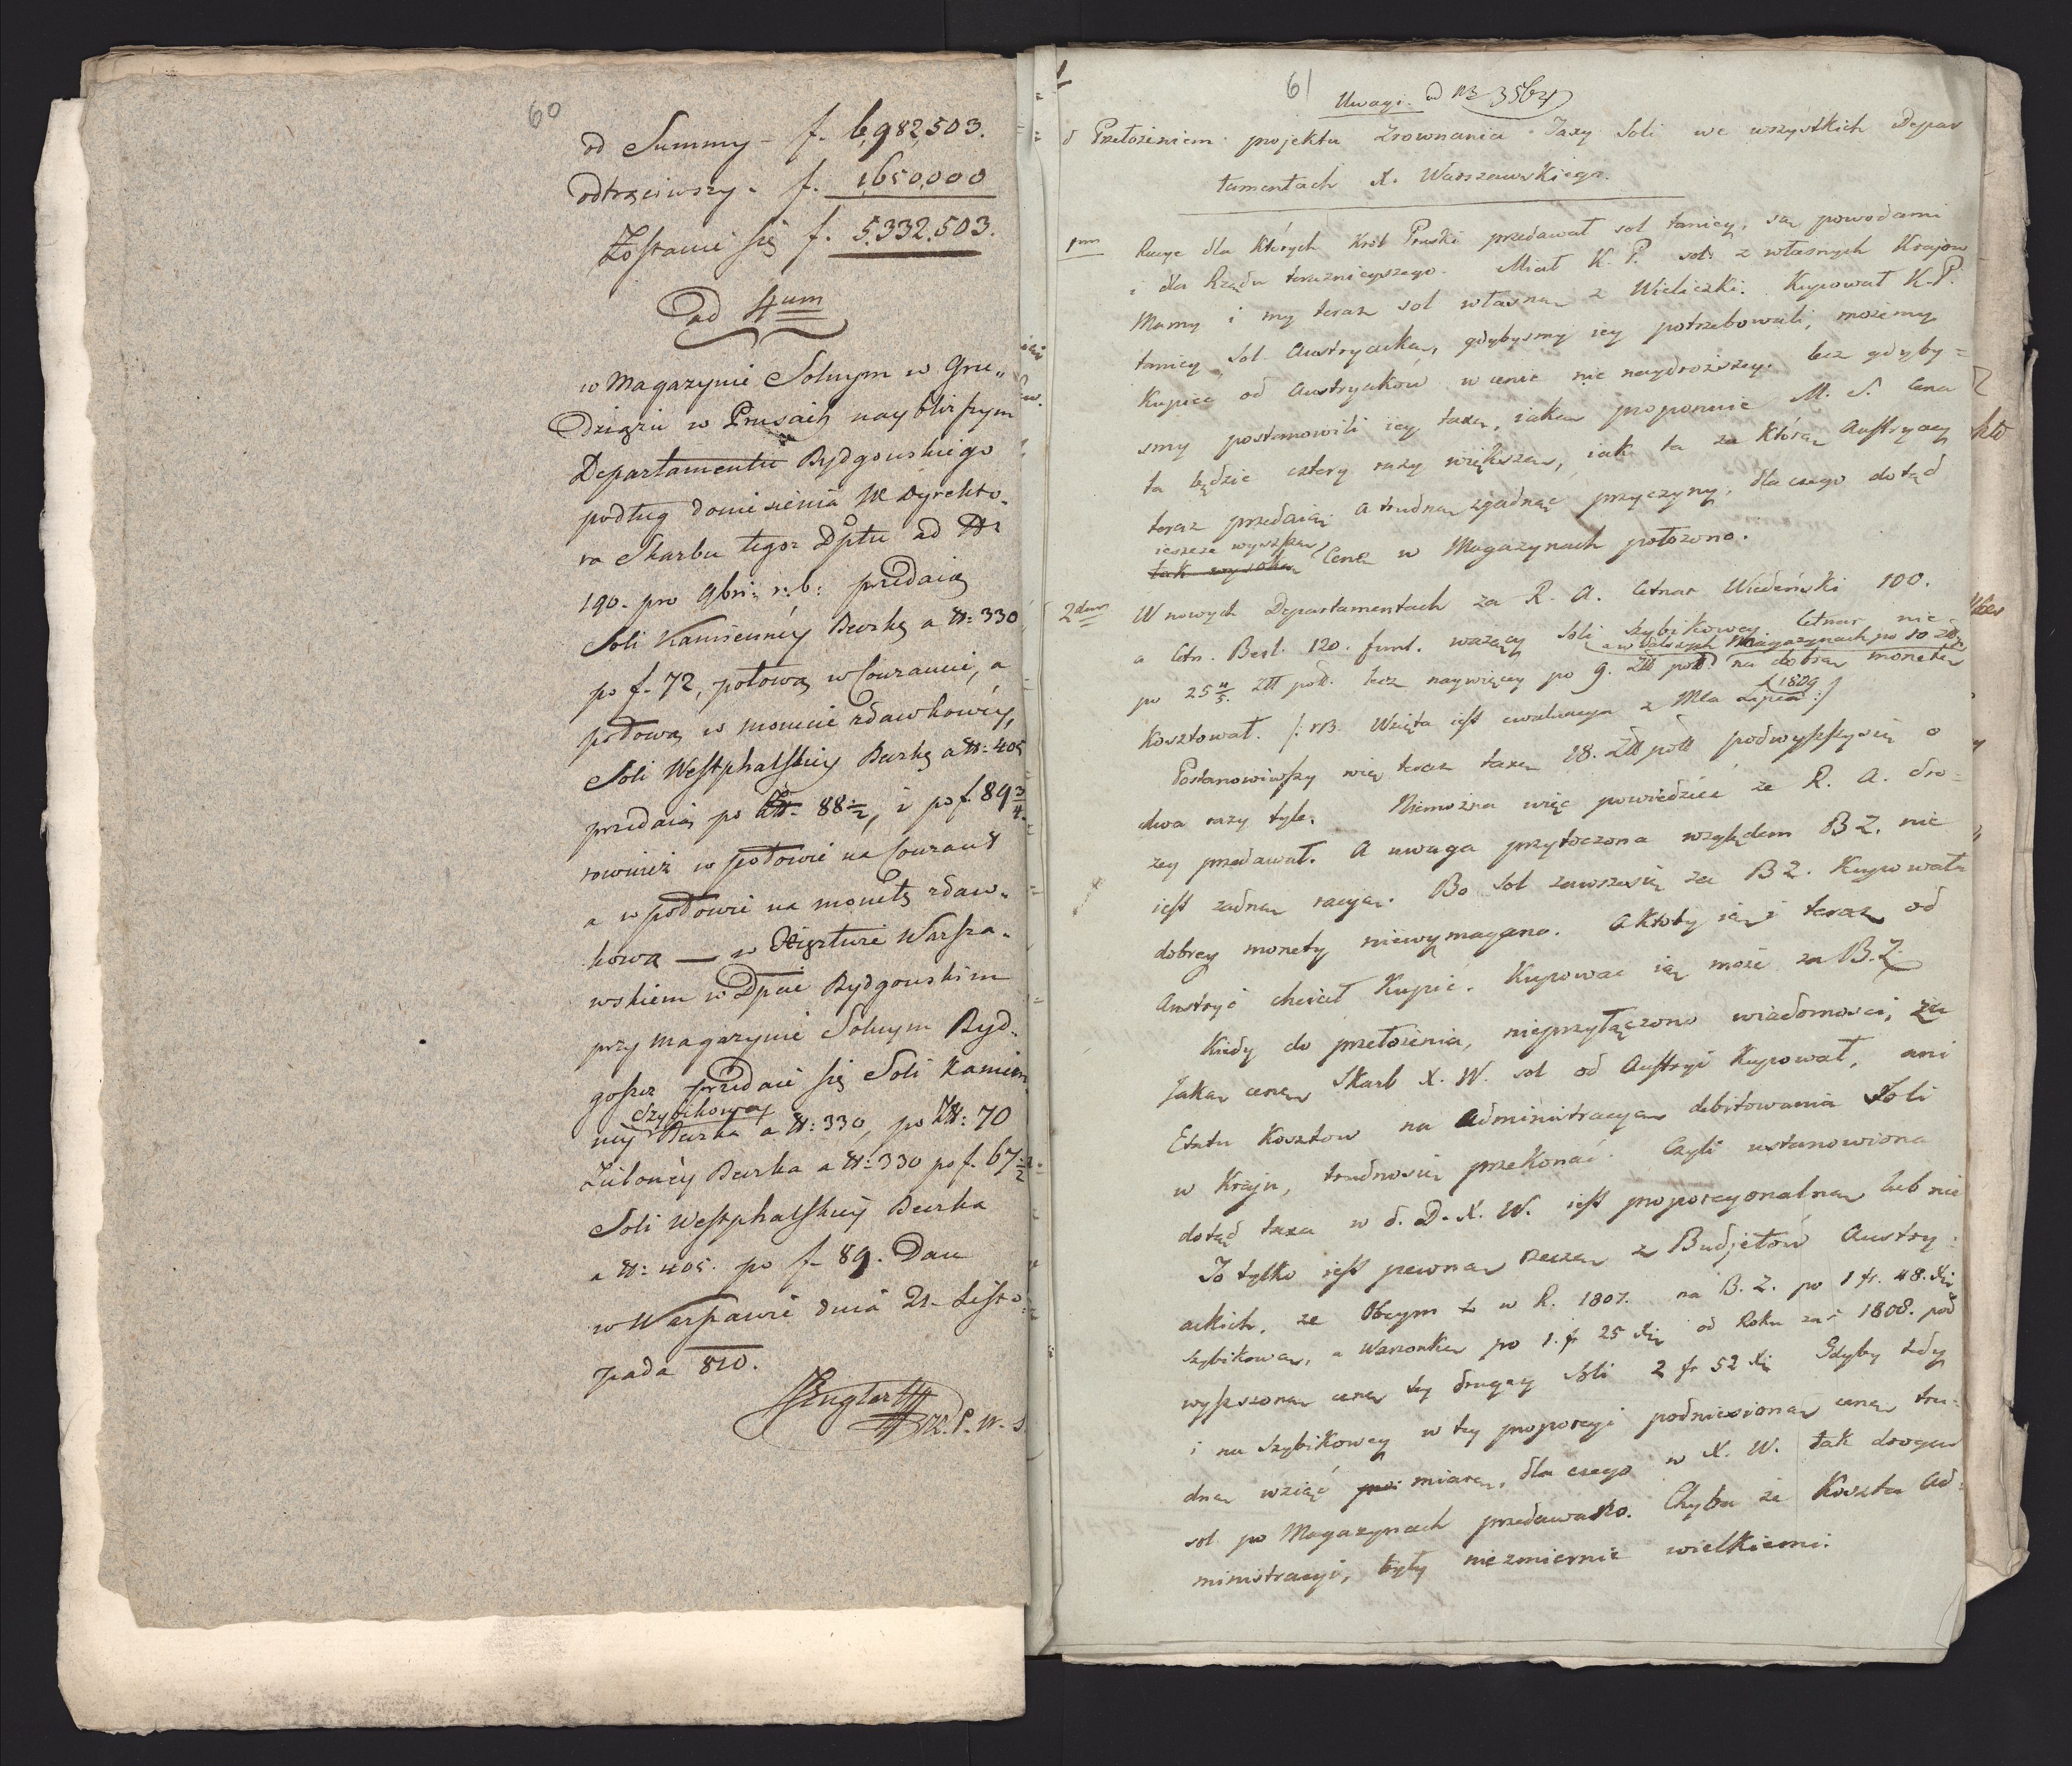 60
od Summy - f. 6,982,503.
odtrąciwszy - f. 1,650,000
Zostanie się f. 5.332.503.
ad 4um
w Magazynie Solnym w Gru„
dziązu w Prusach nayblizszym
Departamentu Bydgouskiego
podług doniesienia W Dyrekto„
ra Skarbu tegoz Dptu ad Nr
190. pro 9bri: r: b: przedaią
Soli Kamiennéy Beczkę a ℔: 330
po f. 72, połową w Courancie, a
połową w monecie zdawkowéy,
Soli Westphalskiey Beczkę a ℔: 405
przedaią po 88½, i po f. 89¾
rownież w połowie na Courant
a w połowie na monetę zdaw„
kową — w Xięztwie Warsza„
wskiem w Dpcie Bydgouskim
przy magazynie Solnym Byd„
goszcz przedaie się Soli Kamien
szybikowey
néy Beczka a ℔: 330, po 70
Zieloneéy Beczka a ℔: 330 po f. 67½
Soli Westphalskiéy Beczka
a ℔: 405. po f. 89. Dan
w Warszawie dnia 21. Listo„
pada 810.
61
Uwagi ad N3 3564
d Przełożeniem projektu Zrownania Taxy Soli we wszystkich Depar
tamentach X. Warszawskiego.
1mo Racye dla których Król Pruski przedawał sol taniey, są powodami
i dla Rządu teraznieyszego. Miał K. P. sol z własnych Kraiow
Mamy i my teraz sol własną z Wieliczki. Kupował K. P.
taniey Sol Austryacką, gdybysmy iey potrzebowali, możemy
Kupić od Austryaków w cenie nie naydroższey. lecz gdyby=
smy postanowili iey taxę, iaką proponuie M. S. Cena
ta będzie cztery razy większa, iak ta za którą Austryacy
teraz przedaią; a trudno zgadnąć przyczyny, dla czego dotąd
ieszcze wyższą
tak wysoką Cenę w Magazynach położono.
2do W nowych Departamentach za R. A. Cetnar Wiedeński 100.
a Ctn. Berl. 120. funt. ważący Soli szybikowey Cetnar nie
a w dalszych Magazynach po 10 Zł
po 25⅘ Złł poll. lecz naywięcey po 9. Złł poll na dobrą monetę
kosztował. /: NB. Wzięta iest ewaluacya z Mca Lipca 1809 :/
Postanowiwszy więc teraz taxę 18. Złł poll podwyższy się o
dwa razy tyle. Niemożna więc powiedzieć że R. A. dro=
żey przedawał. A uwaga przytoczona względem BZ. nie
iest żadną racyą. Bo sol zawszesię za BZ. Kupowała
dobrey monety niewymagano. A ktoby ią i teraz od
Austryi chciał Kupić. Kupować ią może za B.Z.
Kiedy do przełożenia, nieprzyłączono wiadomosci, za
Jaką cenę Skarb X. W. sol od Austryi Kupował, ani
Etatu Kosztow na Administracyą debitowania Soli
w Kraju, trudnosię przekonać. Czyli ustanowiona
dotąd taxa w d. D. X. W. iest proporcyonalna lub nie
To tylko iest pewną rzeczą z Budjetów Austry=
ackich. że Obcym w R. 1807. na B. Z. po 1 fr. 48. Xr
szybikową, a Warzonkę po 1. fr 25 Xr od Roku zaś 1808. pod
wyższoną cenę tey drugiey Soli 2 fr 52 Xr Gdyby tedy
i na szybikowey w tey proporcyi podniesiona cena tru=
dną wziąć miarę, dla czego w X. W. tak drogo
sol po Magazynach przedawano. Chyba że Koszta Ad=
ministracyi, były niezmiernie wielkiemi.